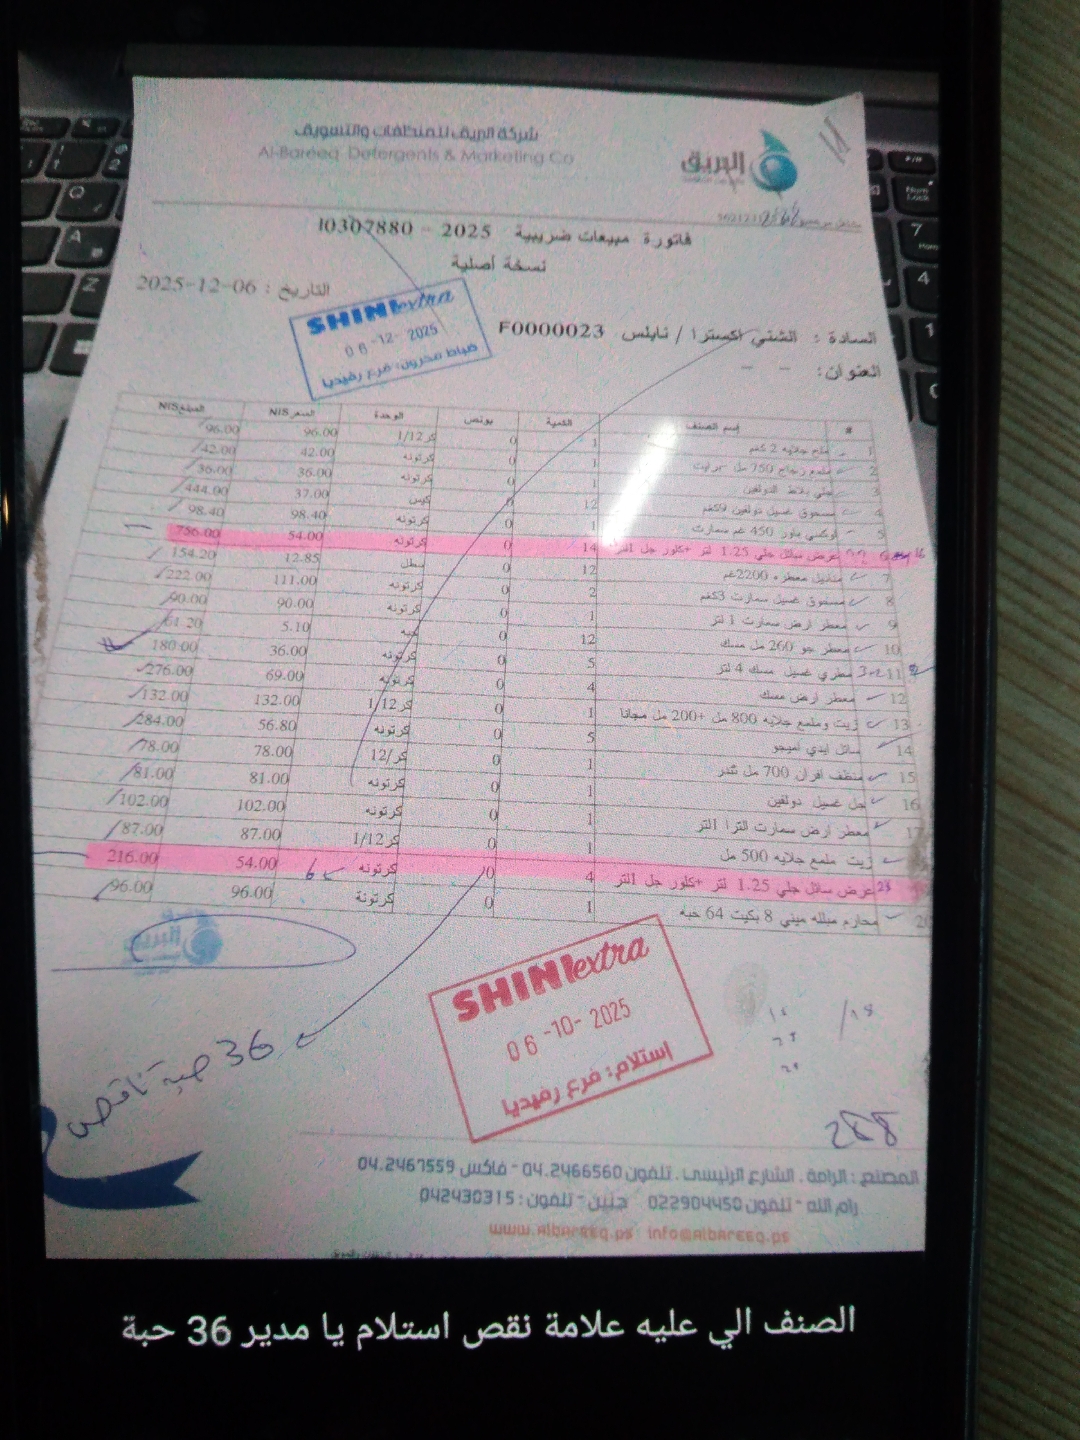 شركة البريق للمنظفات والتسويق
Al-Bareeq Detergents & Marketing Co
البريق
فاتورة مبيعات ضريبية 2025 - 10307880
نسخة أصلية
التاريخ : 2025-12-06
SHINIextra
06-12-2025
فرع رفيديا
السادة : الشني اكسترا / نابلس F0000023
العنوان: - -
# إسم الصنف الكمية بونص الوحدة السعر NIS المبلغ NIS
1 ملح جلايه 2 كغم 1 0 كر1/12 96.00 96.00
2 ملمع زجاج 750 مل برايت 1 0 كرتونه 42.00 42.00
3 جلي بلاط الدولفين 1 0 كرتونه 36.00 36.00
4 مسحوق غسيل دولفين 9كغم 12 0 كيس 37.00 444.00
5 اوكسي باور 450 غم سمارت 1 0 كرتونه 98.40 98.40
6 عرض سائل جلي 1.25 لتر +كلور جل 1لتر 14 0 كرتونه 54.00 756.00
7 مناديل معطره 2200غم 12 0 سطل 12.85 154.20
8 مسحوق غسيل سمارت 3كغم 2 0 كرتونه 111.00 222.00
9 معطر ارض سمارت 1 لتر 1 0 كرتونه 90.00 90.00
10 معطر جو 260 مل مسك 12 0 حبه 5.10 61.20
11 مطري غسيل مسك 4 لتر 5 0 كرتونه 36.00 180.00
12 معطر ارض مسك 4 0 كرتونه 69.00 276.00
13 زيت وملمع جلايه 800 مل +200 مل مجانا 1 0 كر1/12 132.00 132.00
14 سائل ايدي اميجو 5 0 كرتونه 56.80 284.00
15 منظف افران 700 مل ثندر 1 0 كر/12 78.00 78.00
16 جل غسيل دولفين 1 0 كرتونه 81.00 81.00
17 معطر ارض سمارت الترا 1لتر 1 0 كرتونه 102.00 102.00
زيت ملمع جلايه 500 مل 1 0 كر1/12 87.00 87.00
عرض سائل جلي 1.25 لتر +كلور جل 1لتر 4 0 كرتونه 54.00 216.00
محارم مبلله ميني 8 بكيت 64 حبه 1 0 كرتونة 96.00 96.00
SHINIextra
06-10-2025
استلام: فرع رفيديا
36 حبة ناقص
288
المصنع : الرامة . الشارع الرئيسي . تلفون 04.2466560 - فاكس 04.2467559
رام الله - تلفون 022904450 جنين - تلفون : 042430315
www.albareeq.ps info@albareeq.ps
الصنف الي عليه علامة نقص استلام يا مدير 36 حبة